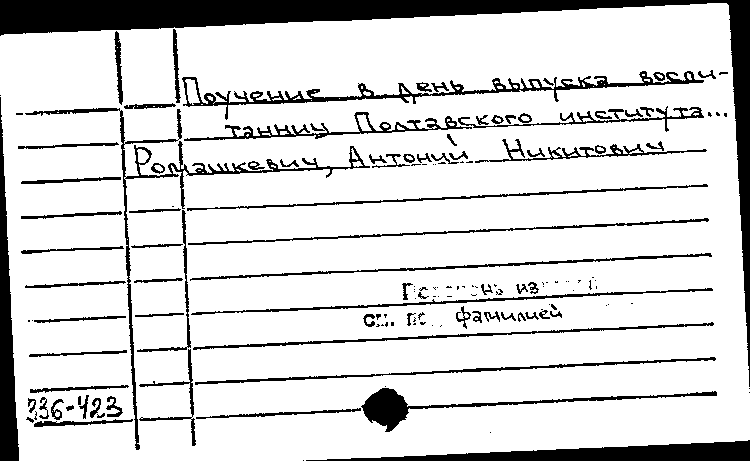 Поучение в день выпуска воспи-
танниц Полтавского института...
Ромашкевич, Антоний Никитович
см. по фамилией
336-423